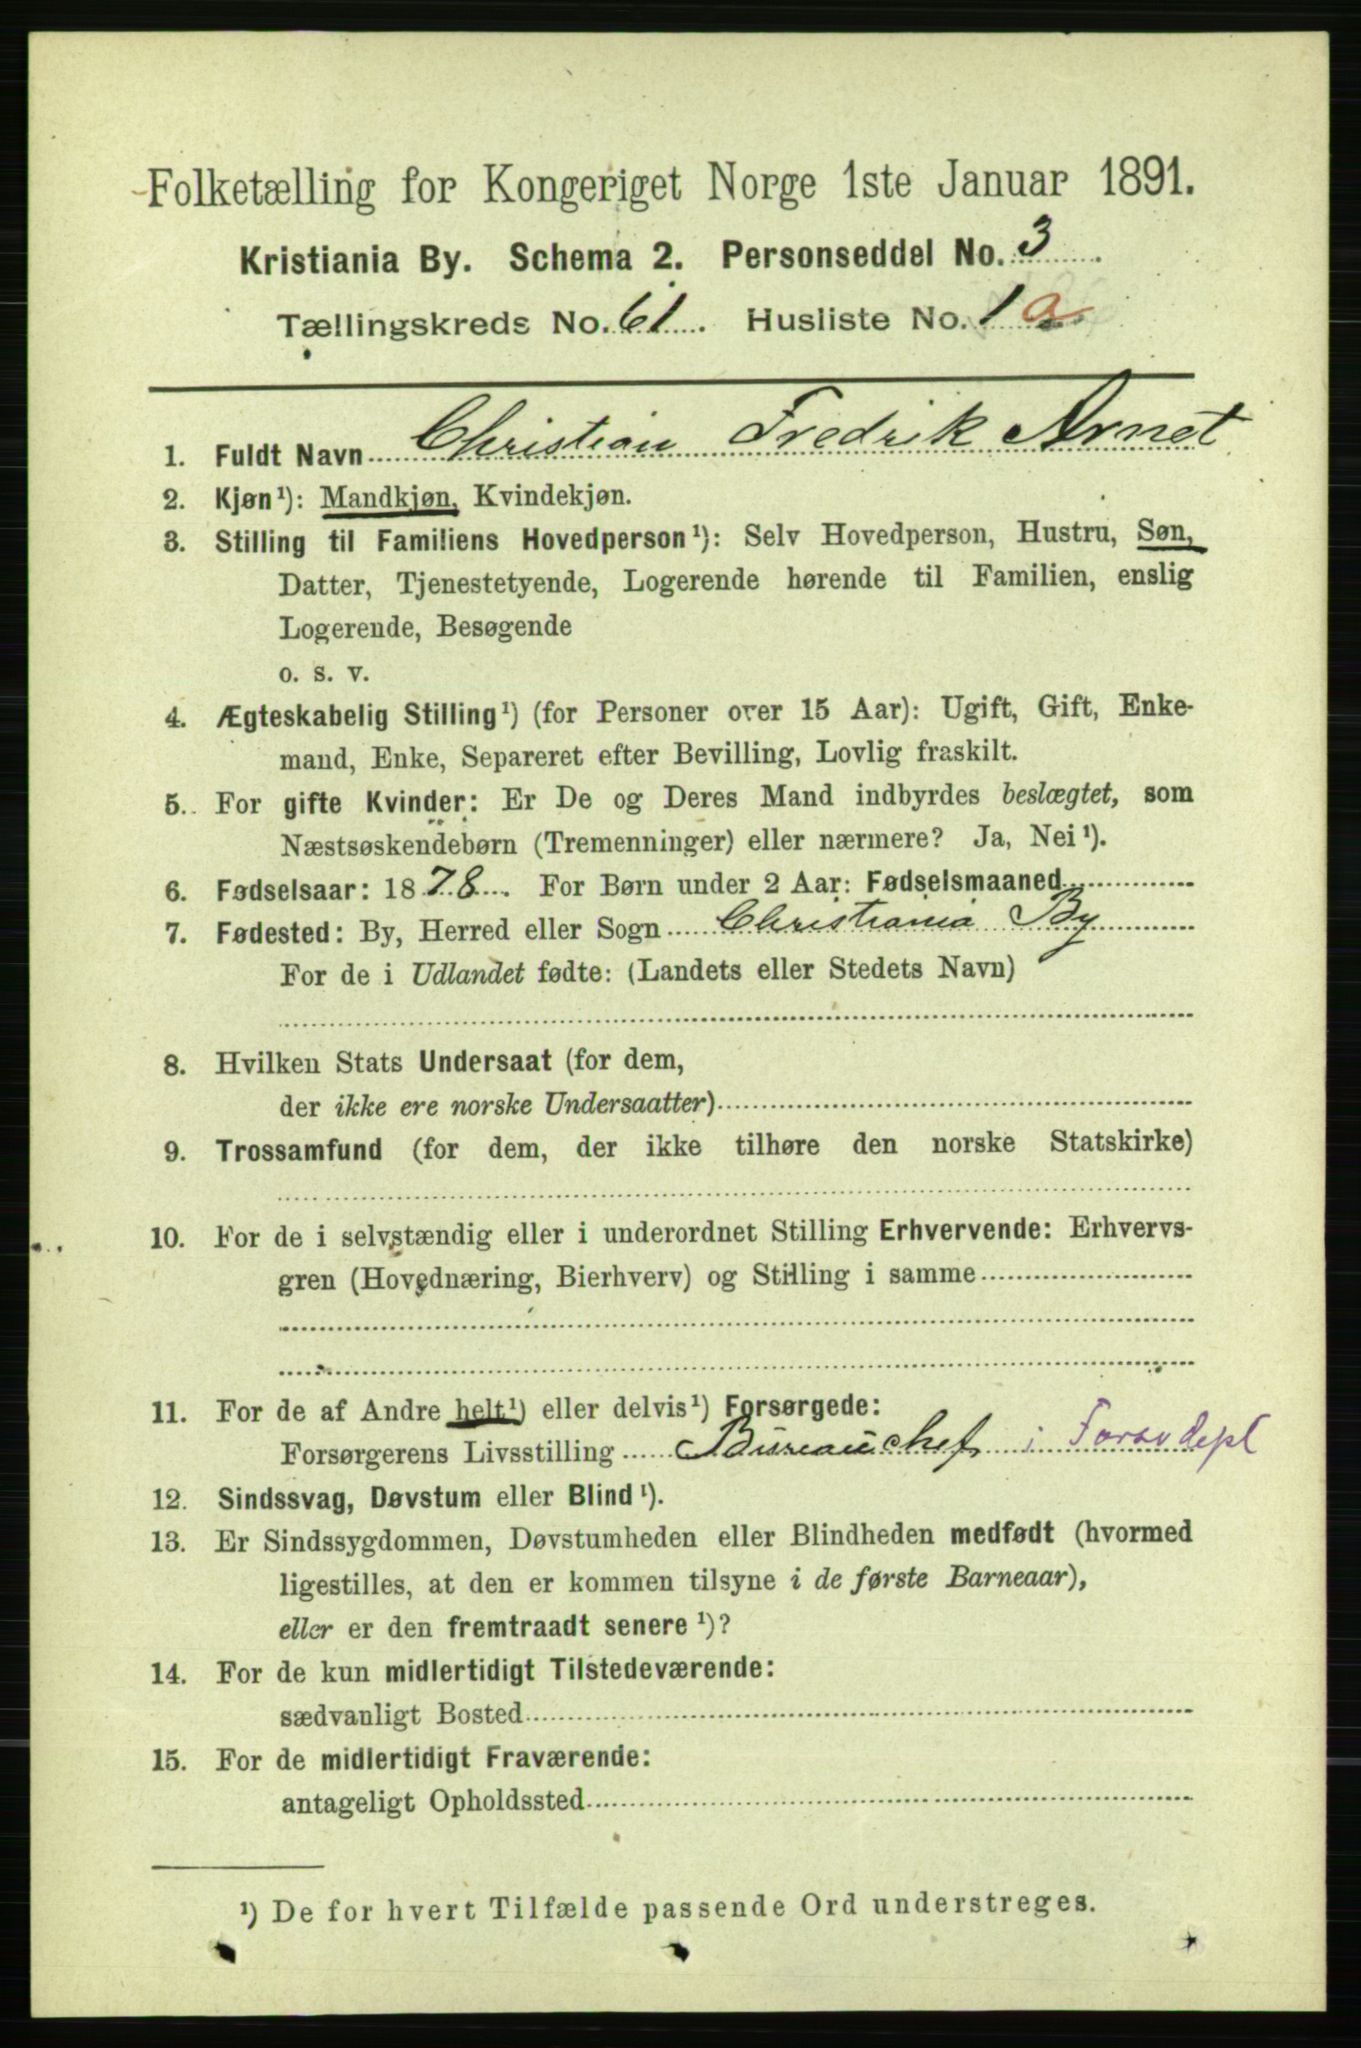 Folketælling for Kongeriget Norge 1ste Januar 1891.
Kristiania By. Schema 2. Personseddel No. 3.
Tællingskreds No. 61. Husliste No. 1 a
1. Fuldt Navn Christian Fredrik Arnet
2. Kjøn¹): Mandkjøn, Kvindekjøn.
3. Stilling til Familiens Hovedperson¹): Selv Hovedperson, Hustru, Søn,
Datter, Tjenestetyende, Logerende hørende til Familien, enslig
Logerende, Besøgende
o. s. v.
4. Ægteskabelig Stilling¹) (for Personer over 15 Aar): Ugift, Gift, Enke-
mand, Enke, Separeret efter Bevilling, Lovlig fraskilt.
5. For gifte Kvinder: Er De og Deres Mand indbyrdes beslægtet, som
Næstsøskendebørn (Tremenninger) eller nærmere? Ja, Nei¹).
6. Fødselsaar: 1878. For Børn under 2 Aar: Fødselsmaaned
7. Fødested: By, Herred eller Sogn Christiania By
For de i Udlandet fødte: (Landets eller Stedets Navn)
8. Hvilken Stats Undersaat (for dem,
der ikke ere norske Undersaatter)
9. Trossamfund (for dem, der ikke tilhøre den norske Statskirke)
10. For de i selvstændig eller i underordnet Stilling Erhvervende: Erhvervs-
gren (Hovednæring, Bierhverv) og Stilling i samme
11. For de af Andre helt¹) eller delvis¹) Forsørgede:
Forsørgerens Livsstilling Bureauchef i Forsvdept
12. Sindssvag, Døvstum eller Blind¹).
13. Er Sindssygdommen, Døvstumheden eller Blindheden medfødt (hvormed
ligestilles, at den er kommen tilsyne i de første Barneaar),
eller er den fremtraadt senere¹)?
14. For de kun midlertidigt Tilstedeværende:
sædvanligt Bosted
15. For de midlertidigt Fraværende:
antageligt Opholdssted
¹) De for hvert Tilfælde passende Ord understreges.